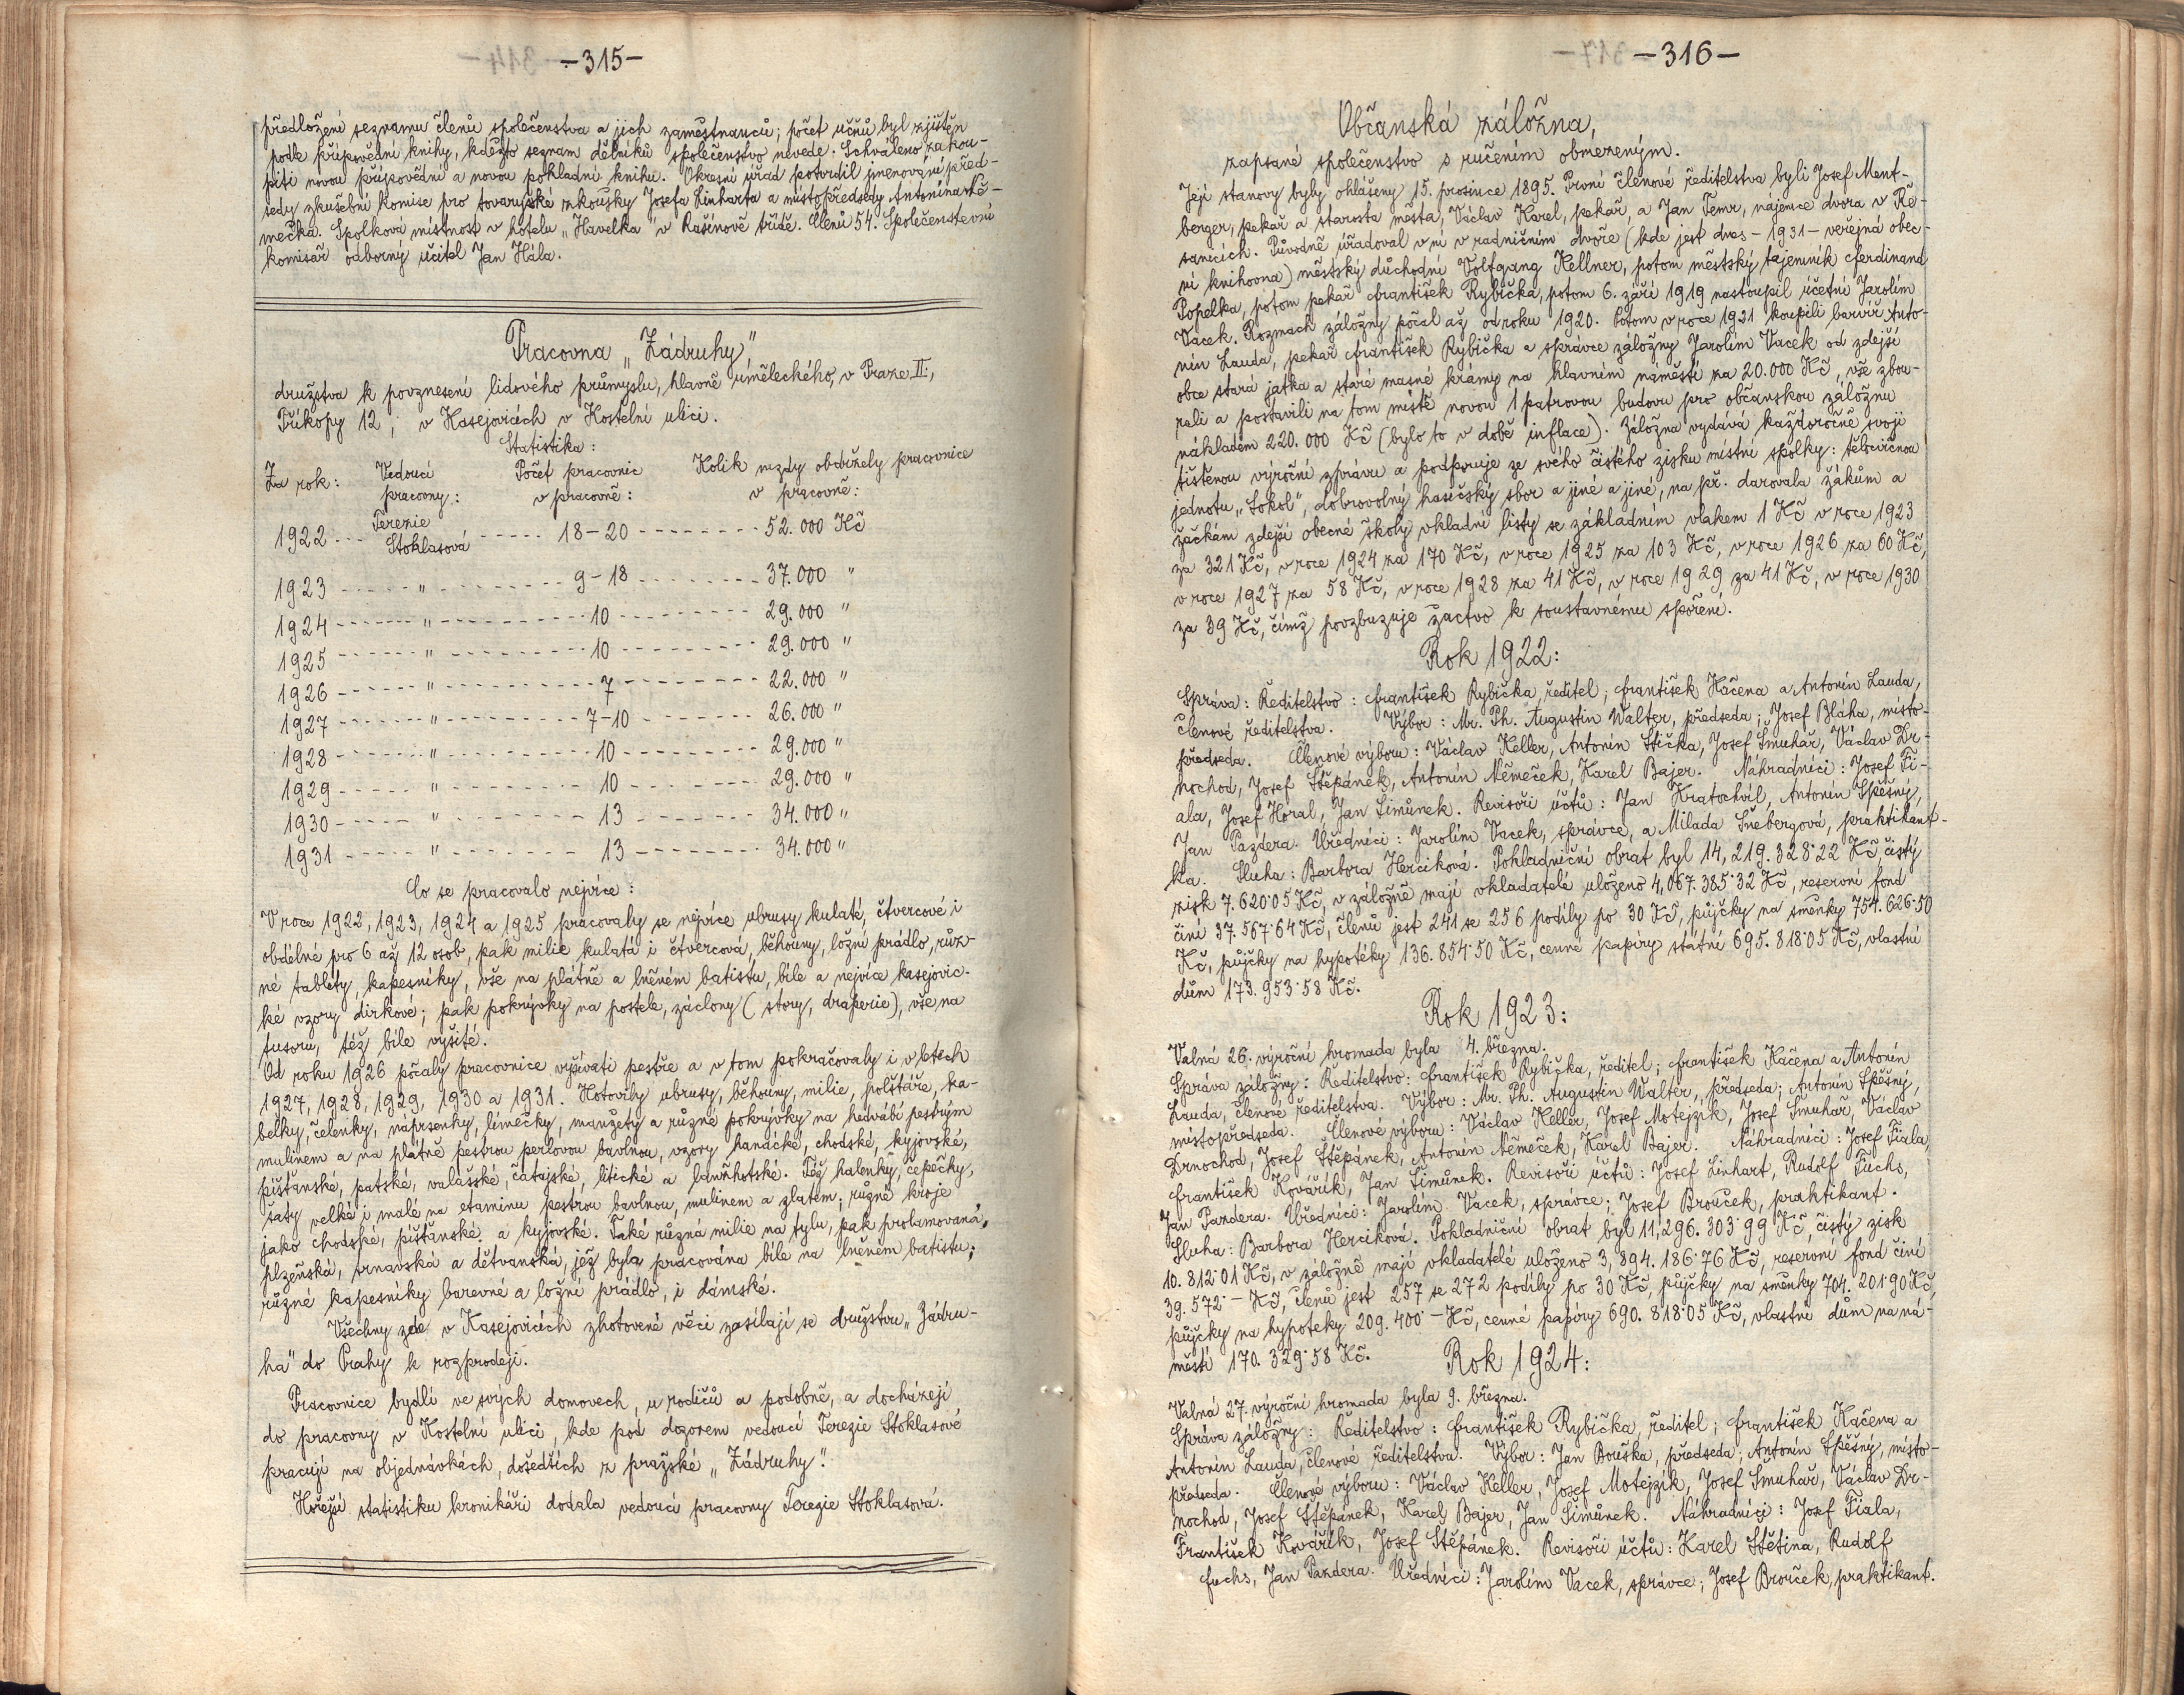 -315-
předložení seznamu členů společenstva a jich zaměstnanců; počet učňů byl zjištěn
podle přípovědní knihy, kdežto seznam dělníků společenstvo nevede. Schváleno zakou-
piti novou přípovědní a novou pokladní knihu. Okresní úřad potvrdil jmenování před-
sedy zkušební komise pro tovaryšské zkoušky Josefa Linharta a místopředsedy Antonína Ně-
mečka. Spolková místnost v hotelu „Havelka“ v Rašínově třídě. Členů 54. Společenstevní
komisař odborný učitel Jan Hála.
Pracovna „Zádruhy“,
družstva k povznesení lidového průmyslu, hlavně uměleckého, v Praze II.,
Příkopy 12, v Kasejovicích v Kostelní ulici.
Statistika:
Za rok: Vedoucí pracovny: Počet pracovnic v pracovně: Kolik mzdy obdržely pracovnice v pracovně:
1922 --- Terezie Stoklasová ----- 18-20 -------- 52.000 Kč
1923 ----- " -------- 9-18 -------- 37.000 "
1924 ------ " --------- 10 --------- 29.000 "
1925 ------ " --------- 10 --------- 29.000 "
1926 ------ " --------- 7 -------- 22.000 "
1927 ------ " --------- 7-10 ------- 26.000 "
1928 ------ " --------- 10 --------- 29.000 "
1929 ----- " -------- 10 ------- 29.000 "
1930 ----- " -------- 13 ------- 34.000 "
1931 ----- " -------- 13 -------- 34.000 "
Co se pracovalo nejvíce:
V roce 1922, 1923, 1924 a 1925 pracovaly se nejvíce ubrusy kulaté, čtvercové i
obdélné pro 6 až 12 osob, pak milie kulatá i čtvercová, běhouny, ložní prádlo, růz-
né tablety, kapesníky, vše na plátně a lněném batistu, bíle a nejvíce kasejovic-
ké vzory dírkové; pak pokrývky na postele, záclony (story, draperie), vše na
tusoru, též bíle vyšité.
Od roku 1926 počaly pracovnice vyšívati pestře a v tom pokračovaly i v letech
1927, 1928, 1929, 1930 a 1931. Hotovily ubrusy, běhouny, milie, polštáře, ka-
belky, čelenky, náprsenky, límečky, manžety a různé pokrývky na hedvábí pestrým
mulinem a na plátně pestrou perlovou bavlnou, vzory hanácké, chodské, kyjovské,
píšťanské, patské, valašské, čatajské, litické a lanžhotské. Též halenky, čepečky,
šaty velké i malé na etaminu pestrou bavlnou, mulinem a zlatem; různé kroje
jako chodské, píšťanské a kyjovské. Také různá milie na tylu, pak prolamovaná,
plzeňská, trnavská a dětvanská, jež byla pracována bíle na lněném batistu;
různé kapesníky barevné a ložní prádlo, i dámské.
Všechny zde v Kasejovicích zhotovené věci zasílají se družstvu „Zádru-
ha“ do Prahy k rozprodeji.
Pracovnice bydlí ve svých domovech, u rodičů a podobně, a docházejí
do pracovny v Kostelní ulici, kde pod dozorem vedoucí Terezie Stoklasové
pracují na objednávkách, došedších z pražské „Zádruhy“.
Hořejší statistiku kronikáři dodala vedoucí pracovny Terezie Stoklasová.
-316-
Občanská záložna,
zapsané společenstvo s ručením obmezeným.
Její stanovy byly ohlášeny 15. prosince 1895. První členové ředitelstva byli Josef Ment-
berger, pekař a starosta města, Václav Karel, pekař, a Jan Temr, nájemce dvora v Ře-
sanicích. Původně úřadoval v ní v radničním dvoře (kde jest dnes - 1931 - veřejná obec-
ní knihovna) městský důchodní Volfgang Kellner, potom městský tajemník Ferdinand
Popelka, potom pekař František Rybička, potom 6. září 1919 nastoupil účetní Jarolím
Vacek. Rozmach záložny počal až od roku 1920. Potom v roce 1921 koupili barvíř Anto-
nín Lauda, pekař František Rybička a správce záložny Jarolím Vacek od zdejší
obce stará jatka a staré masné krámy na hlavním náměstí za 20.000 Kč, vše zbou-
rali a postavili na tom místě novou 1 patrovou budovu pro občanskou záložnu
nákladem 220.000 Kč (bylo to v době inflace). Záložna vydává každoročně svoji
tištěnou výroční zprávu a podporuje ze svého čistého zisku místní spolky: tělocvičnou
jednotu „Sokol“, dobrovolný hasičský sbor a jiné a jiné, na př. darovala žákům a
žačkám zdejší obecné školy vkladní listy se základním vkladem 1 Kč v roce 1923
za 321 Kč, v roce 1924 za 170 Kč, v roce 1925 za 103 Kč, v roce 1926 za 60 Kč,
v roce 1927 za 58 Kč, v roce 1928 za 41 Kč, v roce 1929 za 41 Kč, v roce 1930
za 39 Kč, čímž povzbuzuje žactvo k soustavnému spoření.
Rok 1922:
Správa: Ředitelstvo: František Rybička, ředitel; František Kačena a Antonín Lauda,
členové ředitelstva. Výbor: Mr. Ph. Augustin Walter, předseda; Josef Bláha, místo-
předseda. Členové výboru: Václav Keller, Antonín Stička, Josef Šmuhař, Václav Dr-
nochod, Josef Štěpánek, Antonín Němeček, Karel Bajer. Náhradníci: Josef Fi-
ala, Josef Horal, Jan Šimůnek. Revisoři účtů: Jan Kratochvíl, Antonín Spěšný,
Jan Pazdera. Úředníci: Jarolím Vacek, správce, a Milada Šnebergová, praktikant-
ka. Sluha: Barbora Hercíková. Pokladniční obrat byl 14,219.328·22 Kč, čistý
zisk 7.620·05 Kč, v záložně mají vkladatelé uloženo 4,067.385·32 Kč, reservní fond
činí 37.567·64 Kč, členů jest 241 se 256 podíly po 30 Kč, půjčky na směnky 754.626·50
Kč, půjčky na hypotéky 136.854·50 Kč, cenné papíry státní 695.818·05 Kč, vlastní
dům 173.953·58 Kč.
Rok 1923:
Valná 26. výroční hromada byla 4. března.
Správa záložny: Ředitelstvo: František Rybička, ředitel; František Kačena a Antonín
Lauda, členové ředitelstva. Výbor: Mr. Ph. Augustin Walter, předseda; Antonín Spěšný,
místopředseda. Členové výboru: Václav Keller, Josef Motejzík, Josef Šmuhař, Václav
Drnochod, Josef Štěpánek, Antonín Němeček, Karel Bajer. Náhradníci: Josef Fiala,
František Kovářík, Jan Šimůnek. Revisoři účtů: Josef Linhart, Rudolf Fuchs,
Jan Pazdera. Úředníci: Jarolím Vacek, správce; Josef Brouček, praktikant.
Sluha: Barbora Hercíková. Pokladniční obrat byl 11,296.303·99 Kč, čistý zisk
10.812·01 Kč, v záložně mají vkladatelé uloženo 3,894.186·76 Kč, reservní fond činí
39.572·- Kč, členů jest 257 se 272 podíly po 30 Kč, půjčky na směnky 704.201·90 Kč,
půjčky na hypoteky 209.400·- Kč, cenné papíry 690.818·05 Kč, vlastní dům na ná-
městí 170.329·58 Kč.
Rok 1924:
Valná 27. výroční hromada byla 9. března.
Správa záložny: Ředitelstvo: František Rybička, ředitel; František Kačena a
Antonín Lauda, členové ředitelstva. Výbor: Jan Bouška, předseda; Antonín Spěšný, místo-
předseda. Členové výboru: Václav Keller, Josef Motejzík, Josef Šmuhař, Václav Dr-
nochod, Josef Štěpánek, Karel Bajer, Jan Šimůnek. Náhradníci: Josef Fiala,
František Kovářík, Josef Štěpánek. Revisoři účtů: Karel Štětina, Rudolf
Fuchs, Jan Pazdera. Úředníci: Jarolím Vacek, správce; Josef Brouček, praktikant.